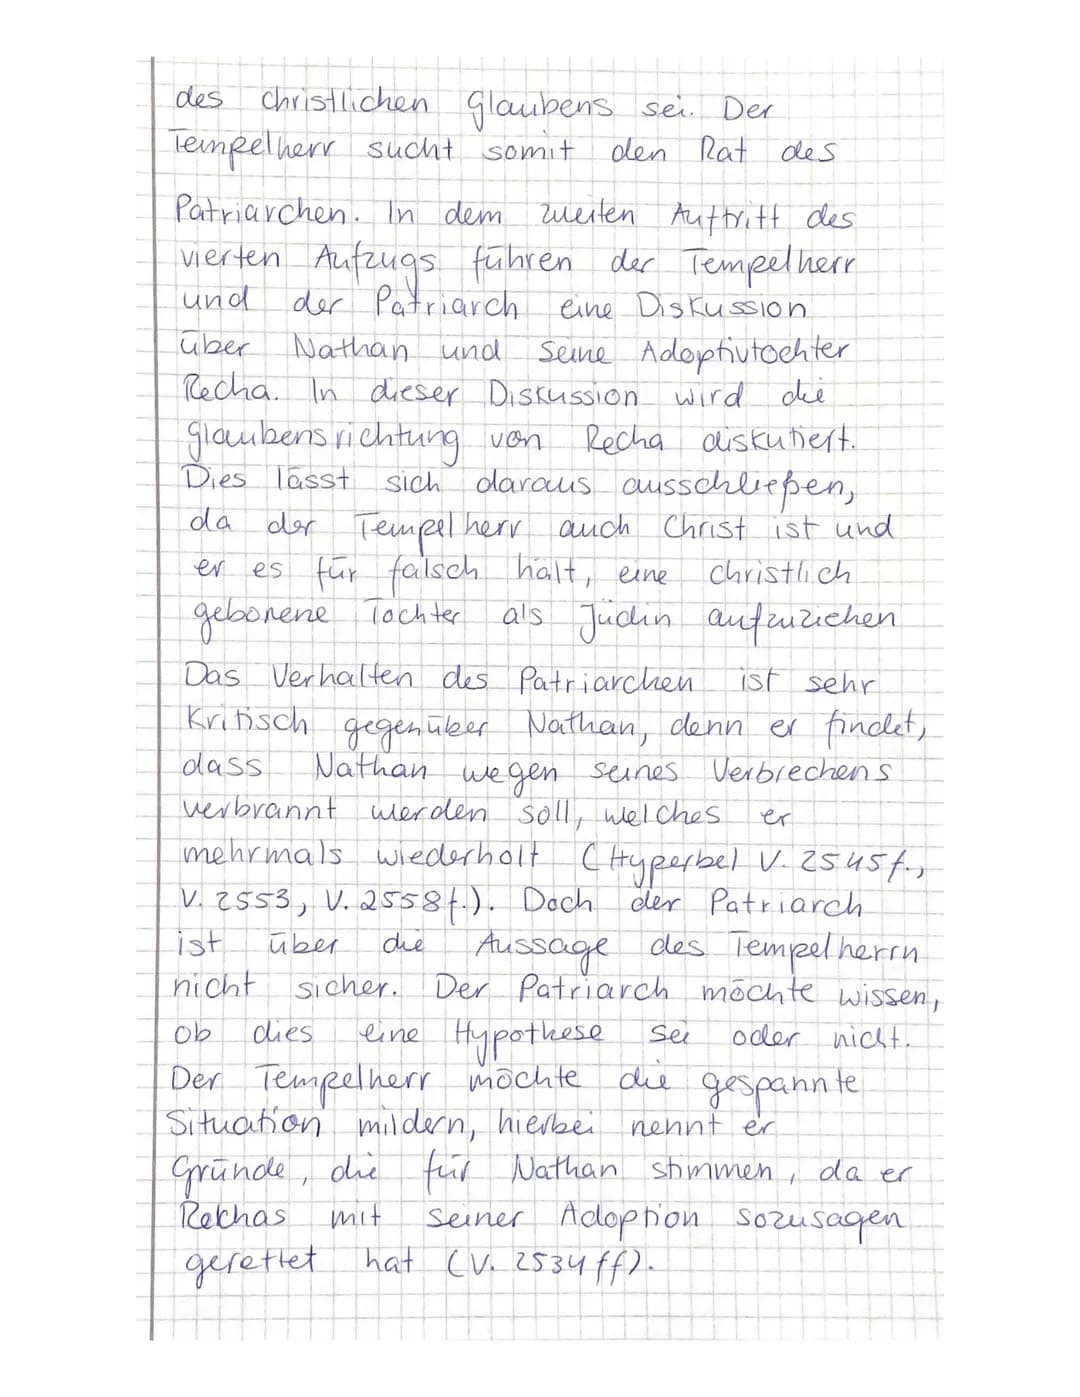 des christlichen Glaubens sei. Der
Tempelherr sucht somit den Rat des
Patriarchen. In dem zweiten Auftritt des
vierten Aufzugs führen der Tempelherr
und der Patriarch eine Diskussion
über Nathan und seine Adoptivtochter
Recha. In dieser Diskussion wird die
Glaubensrichtung von Recha diskutiert.
Dies lässt sich daraus ausschließen,
da der Tempelherr auch Christ ist und
er es für falsch hält, eine christlich
geborene Tochter als Jüdin aufzuziehen
Das Verhalten des Patriarchen ist sehr
kritisch gegenüber Nathan, denn er findet,
dass Nathan wegen seines Verbrechens
verbrannt werden soll, welches er
mehrmals wiederholt (Hyperbel V. 2545f.,
V. 2553, V. 2558f.). Doch der Patriarch
ist über die Aussage des Tempelherrn
nicht sicher. Der Patriarch möchte wissen,
ob dies eine Hypothese sei oder nicht.
Der Tempelherr möchte die gespannte
Situation mildern, hierbei nennt er
Gründe, die für Nathan stimmen, da er
Rechas mit seiner Adoption sozusagen
gerettet hat (V. 2534ff).